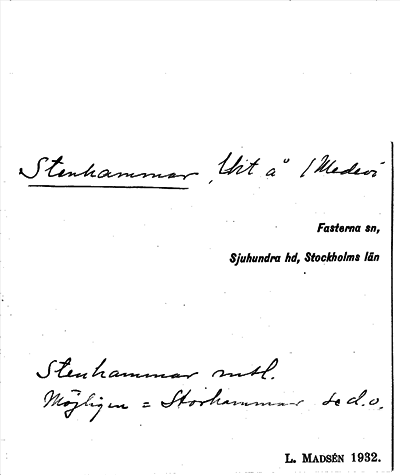 Stenhammar, Utå / Medevi
Fasterna sn,
Sjuhundra hd, Stockholms län
Stenhammar mtl.
Möjligen = Storhammar se d.o.
L. MADSÉN 1932.